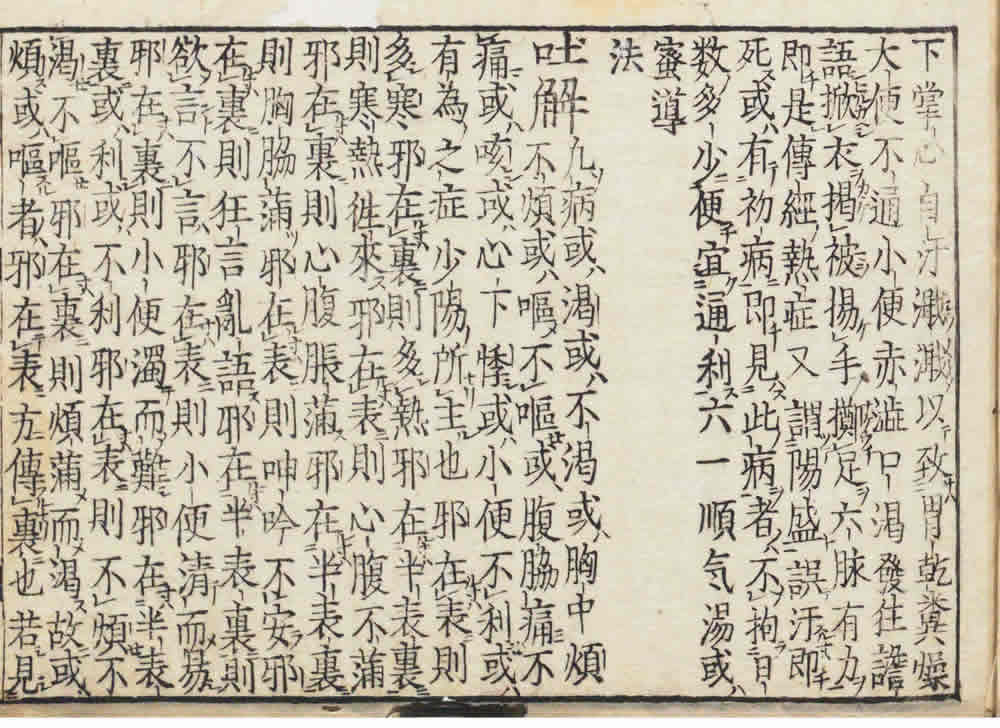 下掌心自汗濈濈以致胃乾糞燥
大便不通小便赤澁口渇發狂譫
語掀衣掲被揚手擲足六脉有力
即是傳經熱症又謂陽盛誤汗即
死或有初病即見此病者不拘日
数多少便宜通利六一順气湯或
蜜導
法
解
九病或渇或不渇或胸中煩
不煩或嘔不嘔或腹脇痛不
痛或咳或心下悸或小便不利或
有為之症少陽所主也邪在表則
多寒邪在裏則多熱邪在半表裏
則寒熱徃來邪在表則心腹不蒲
邪在裏則心腹脹蒲邪在半表裏
則胸脇蒲邪在表則呻吟不安邪
在裏則狂言亂語邪在半表裏則
欲言不言邪在表則小便清而易
邪在裏則小便濁而難邪在半表
裏或利或不利邪在表則不煩不
渇不嘔邪在裏則煩蒲而渇故或
煩或嘔者邪在表方傳裏也若見